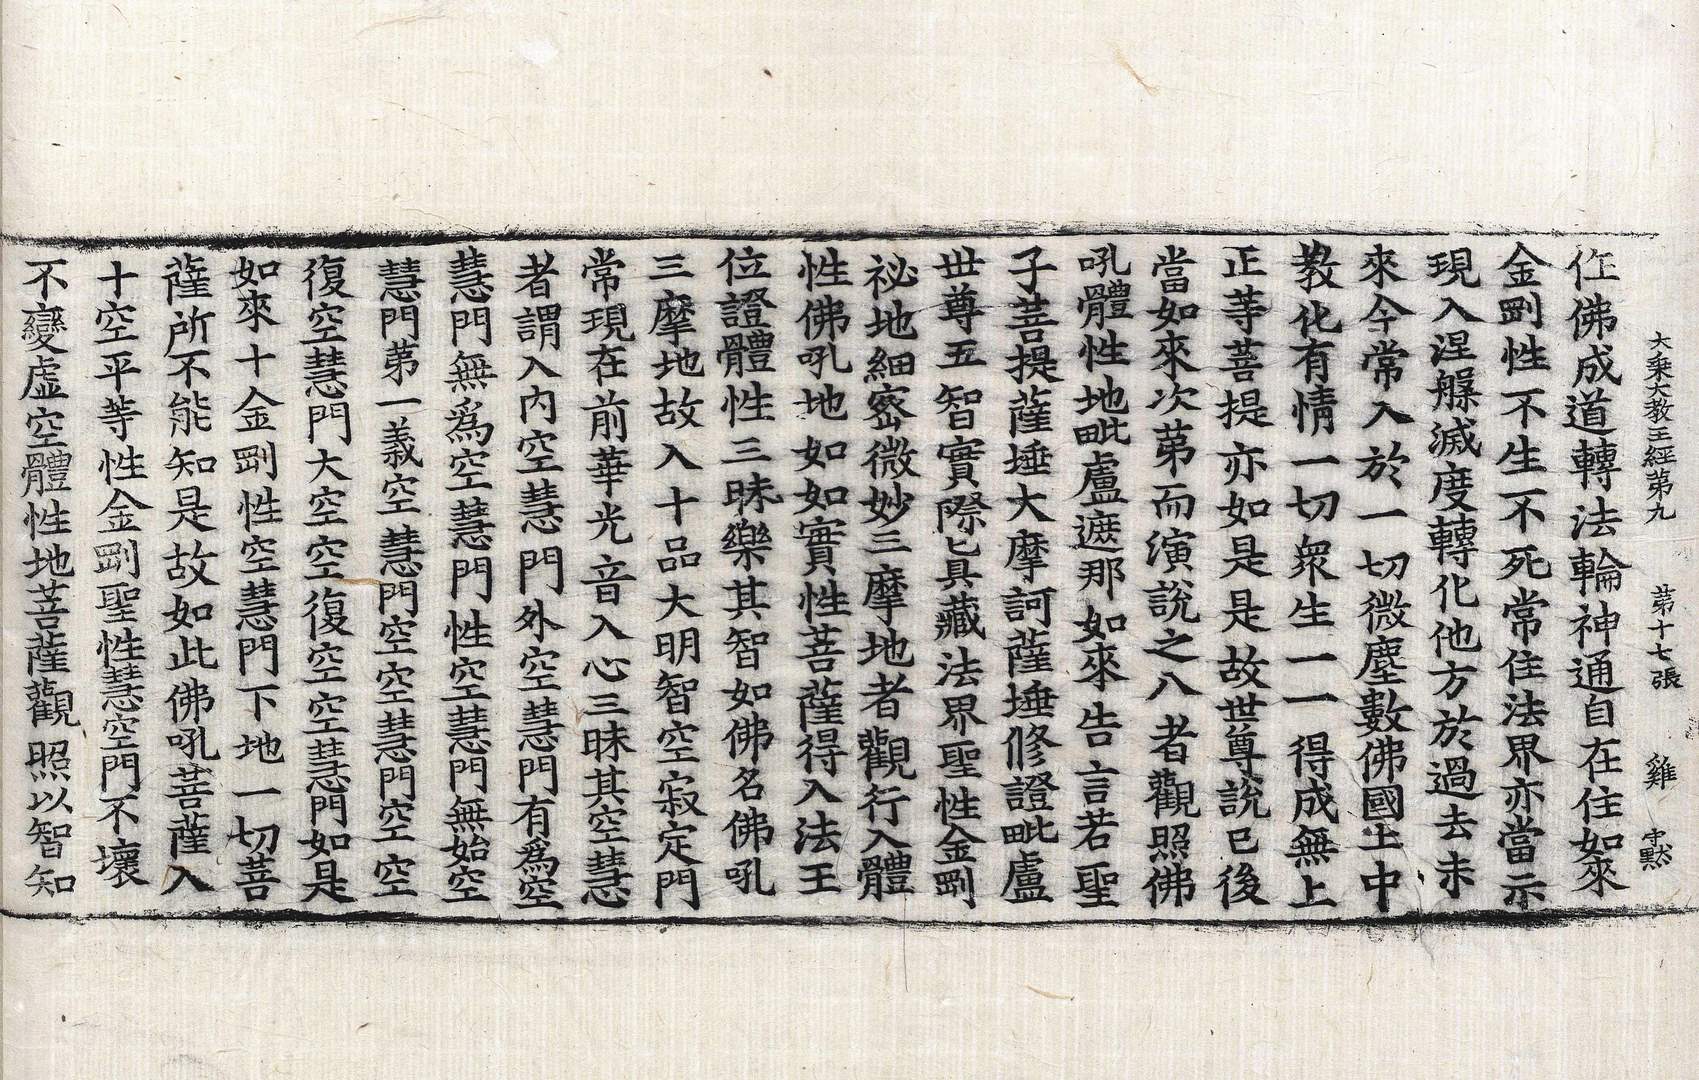 大乗大教王經第九 第十七張 雞 守黙
作佛成道轉法輪神通自在住如來
金剛性不生不死常住法界亦當示
現入涅槃滅度轉化他方於過去未
來今常入於一切微塵數佛國土中
教化有情一切衆生一一得成無上
正等菩提亦如是是故世尊說已後
當如來次第而演說之八者觀照佛
吼體性地毗盧遮那如來告言若聖
子菩提薩埵大摩訶薩埵修證毗盧
世尊五智實際㠯具藏法界聖性金剛
祕地細密微妙三摩地者觀行入體
性佛吼地如如實性菩薩得入法王
位證體性三昧樂其智如佛名佛吼
三摩地故入十品大明智空寂定門
常現在前華光音入心三昧其空慧
者謂入內空慧門外空慧門有爲空
慧門無爲空慧門性空慧門無始空
慧門第一義空慧門空空慧門空空
復空慧門大空空復空空慧門如是
如來十金剛性空慧門下地一切菩
薩所不能知是故如此佛吼菩薩入
十空平等性金剛聖性慧空門不壞
不變虛空體性地菩薩觀照以智知